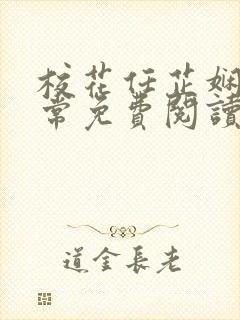 校花任芷娴
常免费阅读
道金長老